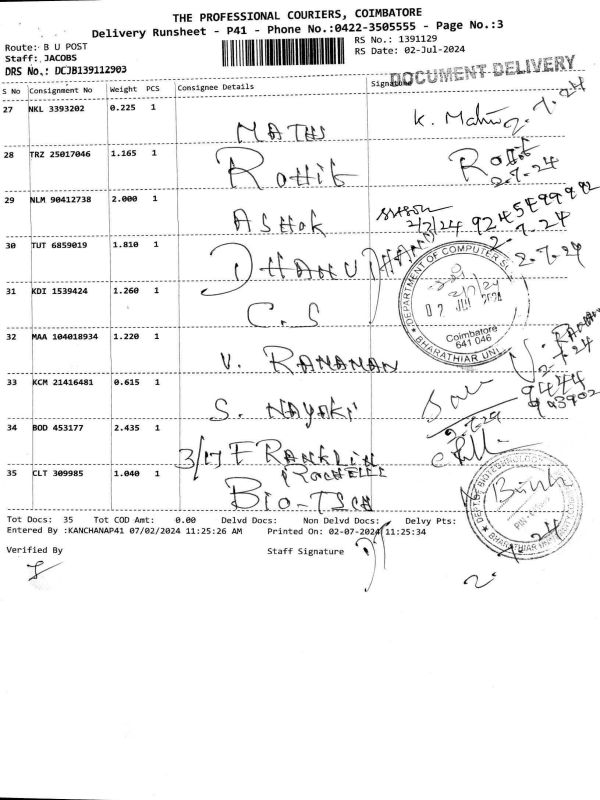 THE PROFESSIONAL COURIERS, COIMBATORE
Delivery Runsheet - P41 - Phone No.:0422-3505555 - Page No.:3
Route: B U POST
RS No.: 1391129
Staff: JACOBS
RS Date: 02-Jul-2024
DRS No.: DCJB139112903
DOCUMENT DELIVERY
S No Consignment No Weight PCS Consignee Details Signature
27 NKL 3393202 0.225 1
MATHI K. 2.7.24
28 TRZ 25017046 1.165 1
Rohit Rohit 2.7.24
29 NLM 90412738 2.000 1
ASHOK 2/7/24 2.7.24
30 TUT 6859019 1.810 1
DHANU 2.7.24
DEPARTMENT OF COMPUTER
02 JUL 2024
Coimbatore
641 046
BHARATHIAR UNI
31 KDI 1539424 1.260 1
C.S
32 MAA 104018934 1.220 1
V. RAMANAN 2.7.24
33 KCM 21416481 0.615 1
S. NAYAKI
34 BOD 453177 2.435 1
FRANKLIN
ROCHELL
35 CLT 309985 1.040 1
BIO-TECH
DEPT. OF BIOTECHNOLOGY
BHARATHIAR UNIVERSITY
2.7.24
Tot Docs: 35 Tot COD Amt: 0.00 Delvd Docs: Non Delvd Docs: Delvy Pts:
Entered By :KANCHANAP41 07/02/2024 11:25:26 AM Printed On: 02-07-2024 11:25:34
Verified By Staff Signature